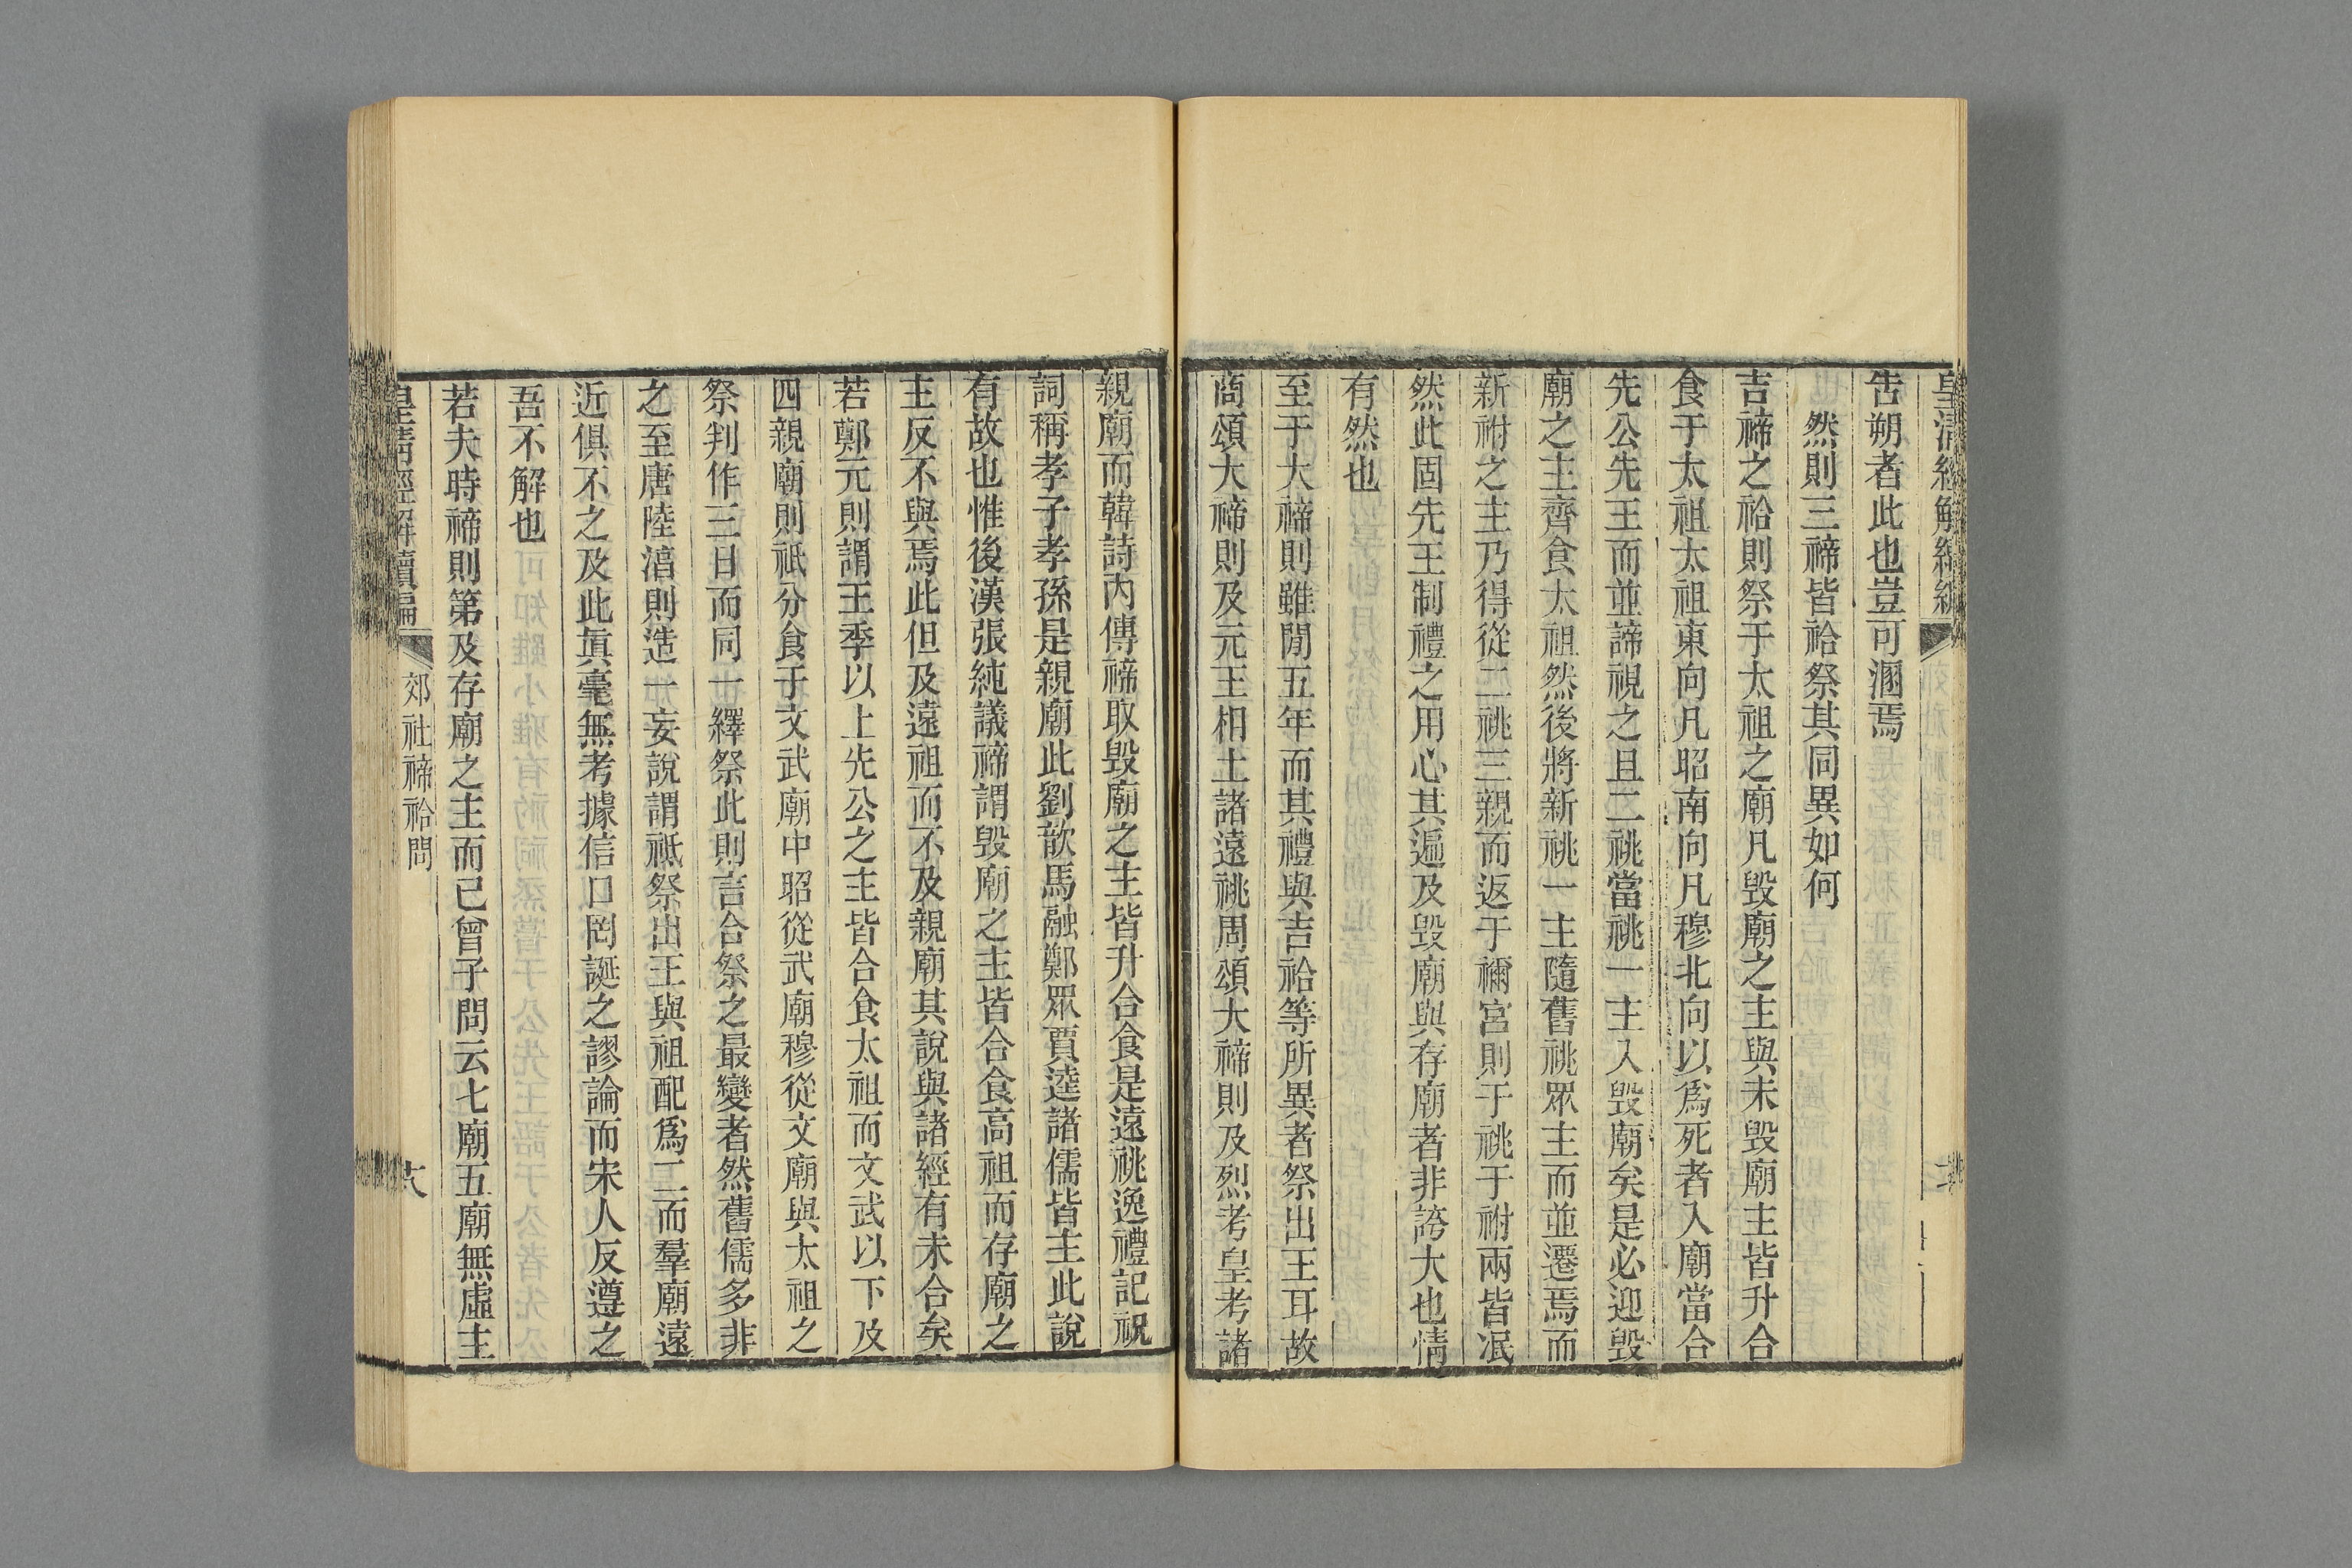 皇清經解續編
告朔者此也豈可溷焉
然則三禘皆祫祭其同異如何
吉禘之祫則祭于太祖之廟凡毀廟之主與未毀廟主皆升合
食于太祖太祖東向凡昭南向凡穆北向以爲死者入廟當合
先公先王而並諦視之且二祧當祧一主入毀廟矣是必迎毀
廟之主齊食太祖然後將新祧一主隨舊祧眾主而並遷焉而
新祔之主乃得從二祧三親而返于禰宮則于祧于祔兩皆泯
然此固先王制禮之用心其遍及毀廟與存廟者非誇大也情
有然也
至于大禘則雖閒五年而其禮與吉祫等所異者祭出王耳故
商頌大禘則及元王相土諸遠祧周頌大禘則及烈考皇考諸
親廟而韓詩內傳禘取毀廟之主皆升合食是遠祧逸禮記祝
詞稱孝子孝孫是親廟此劉歆馬融鄭眾賈逵諸儒皆主此說
有故也惟後漢張純議禘謂毀廟之主皆合食高祖而存廟之
主反不與焉此但及遠祖而不及親廟其說與諸經有未合矣
若鄭元則謂王季以上先公之主皆合食太祖而文武以下及
四親廟則祇分食于文武廟中昭從武廟穆從文廟與太祖之
祭判作三日而同一繹祭此則吉合祭之最變者然舊儒多非
之至唐陸湻則造一妄說謂祇祭出王與祖配爲二而羣廟遠
近俱不之及此眞毫無考據信口罔誕之謬論而宋人反遵之
吾不解也
若夫時禘則第及存廟之主而已曾子問云七廟五廟無虛主
皇清經解續編
郊社禘祫問